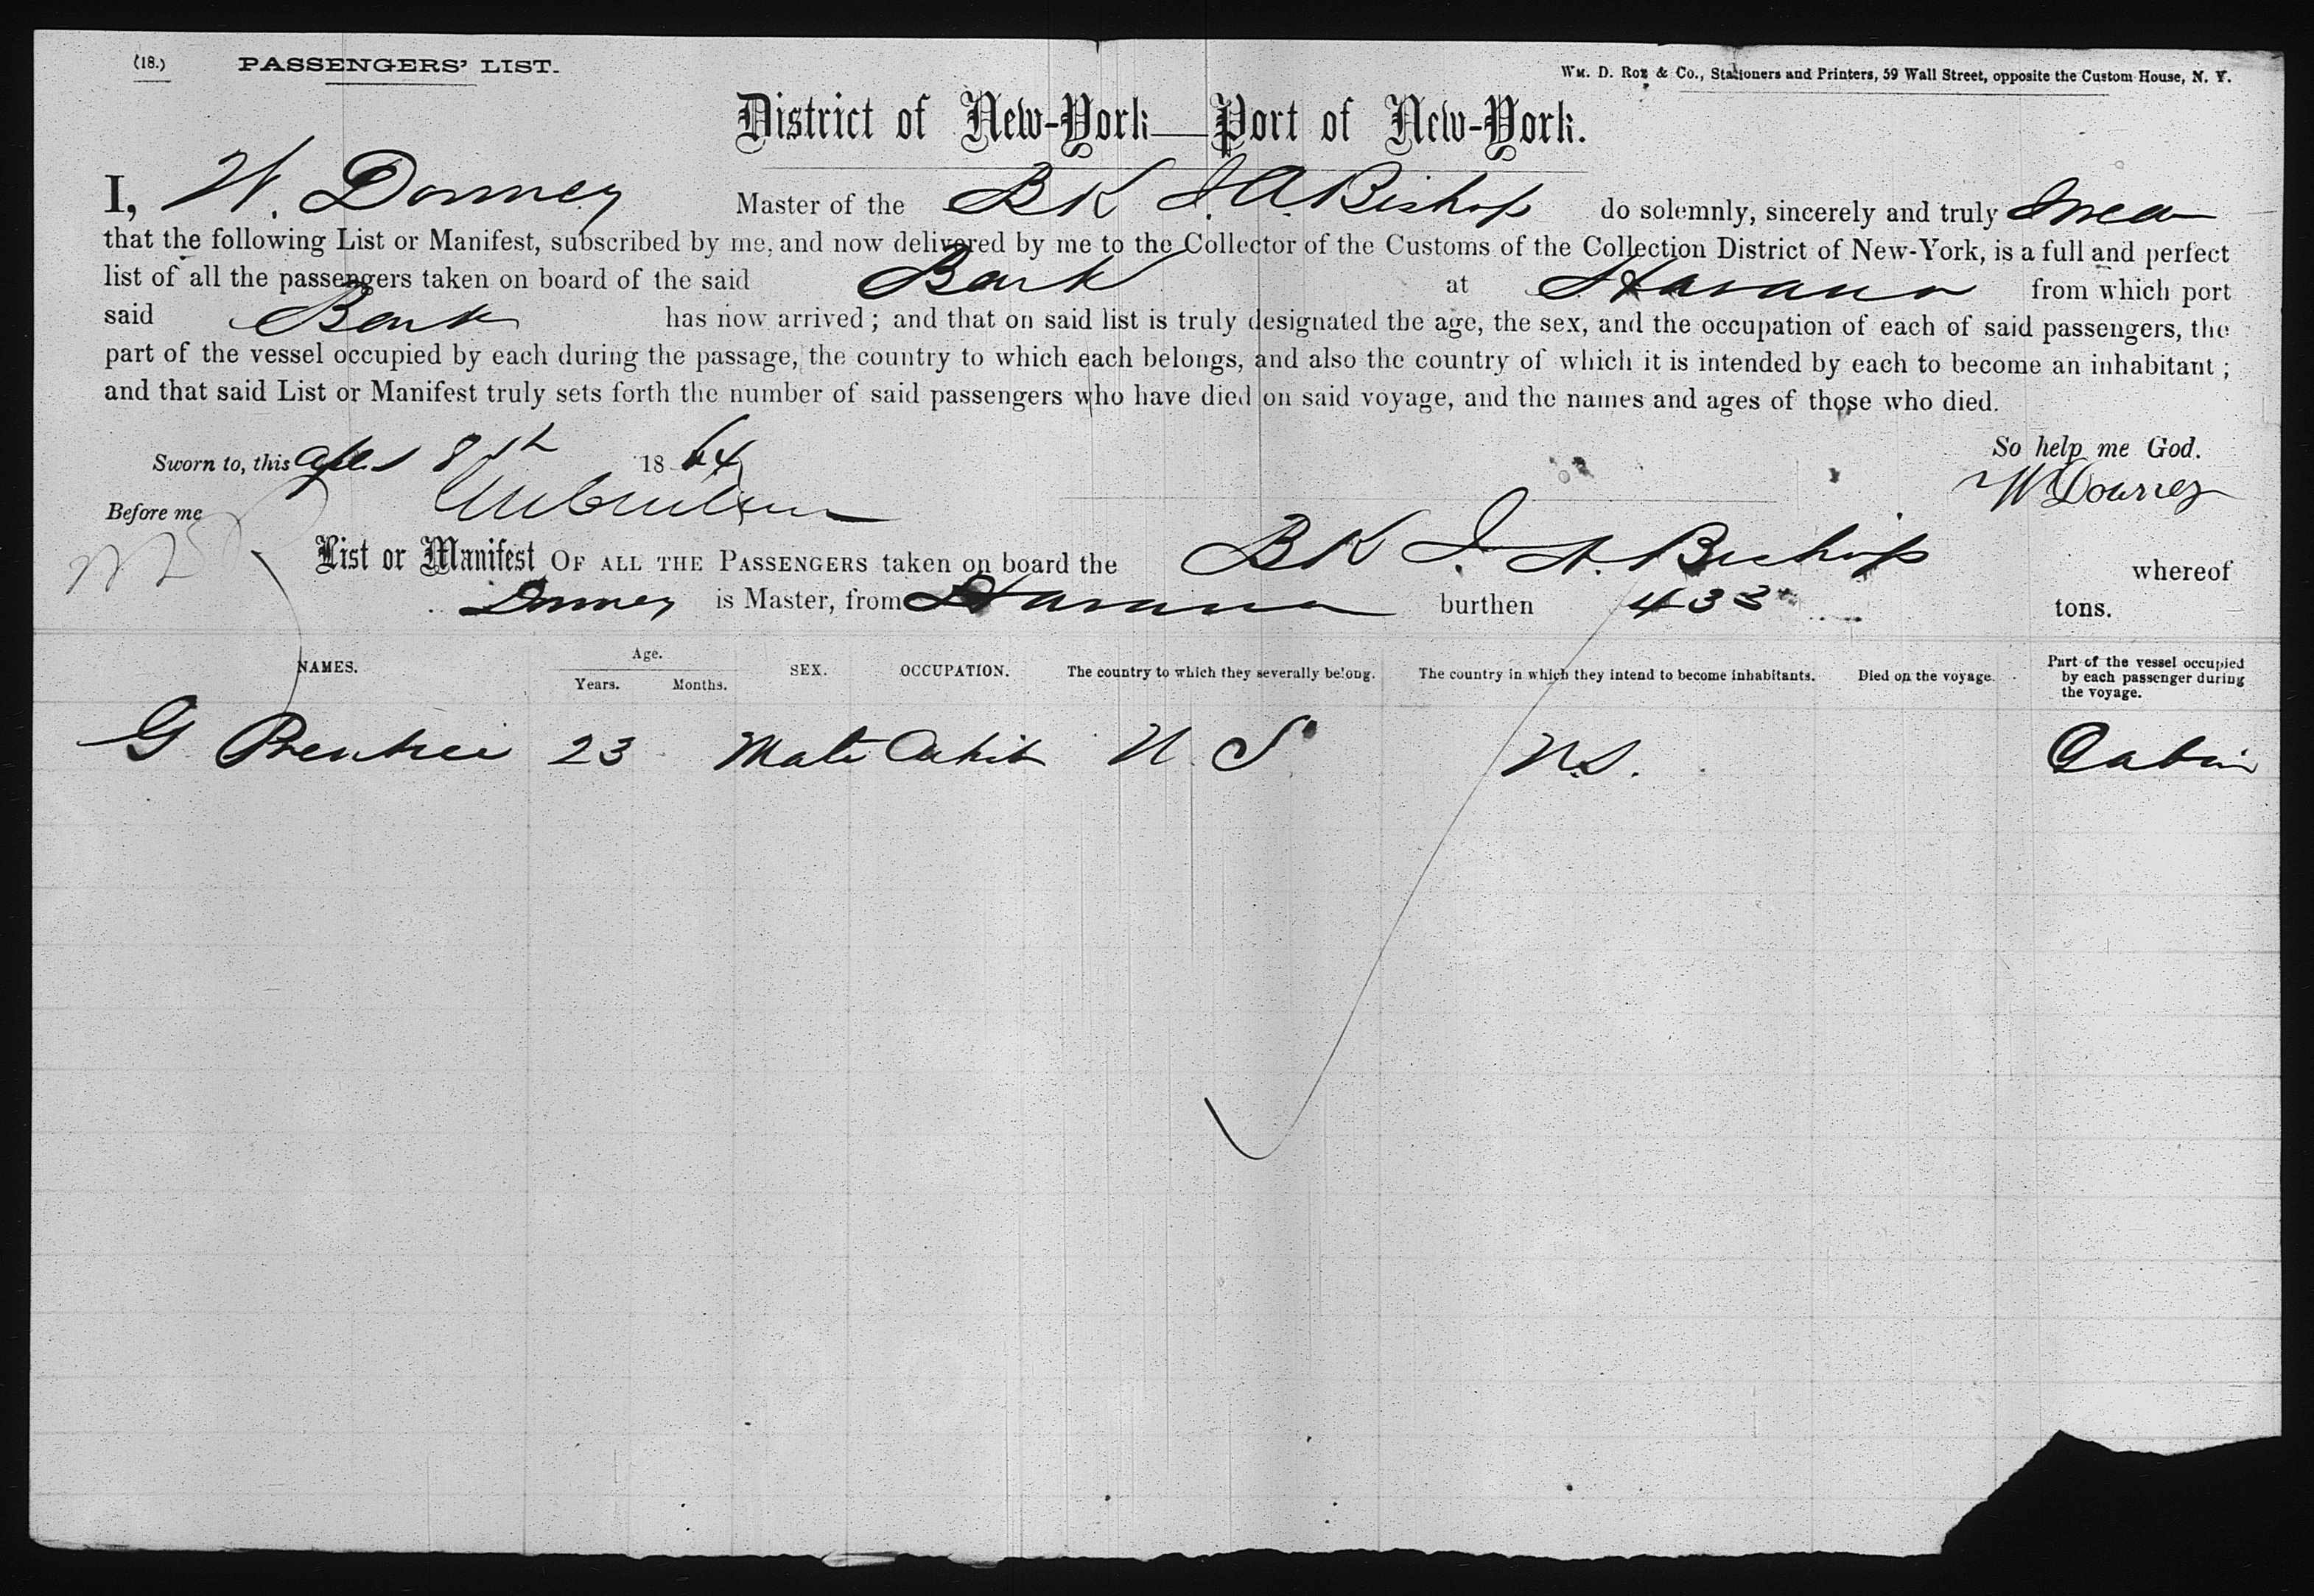 (18.) PASSENGERS' LIST.
WM. D. ROE & Co., Stationers and Printers, 59 Wall Street, opposite the Custom House, N. Y.
District of New-York—Port of New-York.
I, W. Downey Master of the BK J. A. Bishop do solemnly, sincerely and truly Swear
that the following List or Manifest, subscribed by me, and now delivered by me to the Collector of the Customs of the Collection District of New-York, is a full and perfect
list of all the passengers taken on board of the said Bark at Havana from which port
said Bark has now arrived; and that on said list is truly designated the age, the sex, and the occupation of each of said passengers, the
part of the vessel occupied by each during the passage, the country to which each belongs, and also the country of which it is intended by each to become an inhabitant;
and that said List or Manifest truly sets forth the number of said passengers who have died on said voyage, and the names and ages of those who died.
So help me God.
Sworn to, this April 8th 1864
W Downey
Before me
List or Manifest OF ALL THE PASSENGERS taken on board the BK J. A. Bishop whereof
Downey is Master, from Havana burthen 433 tons.
NAMES. Age. Years. Months. SEX. OCCUPATION. The country to which they severally belong. The country in which they intend to become inhabitants. Died on the voyage. Part of the vessel occupied by each passenger during the voyage.
G Prentice 23 Male U S U.S. Cabin